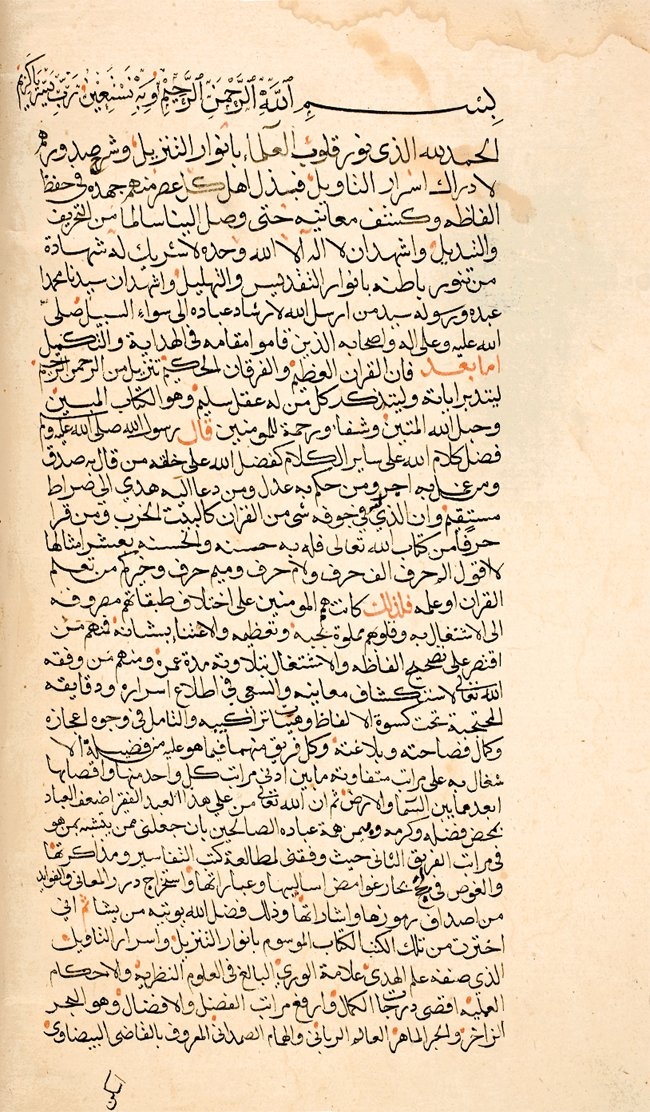 بسم الله الرحمن الرحيم وبه نستعين رب يسر يا كريم
الحمد لله الذى نور قلوب العلماء بانوار التنزيل وشرح صدورهم
لادراك اسرار التاويل فبذل اهل كل عصر منهم جهده فى حفظ
الفاظه وكشف معانيه حتى وصل الينا سالما من التحريف
والتبديل واشهد ان لا اله الا الله وحده لا شريك له شهادة
من تنور باطنه بانوار التقديس والتهليل واشهد ان سيدنا محمدا
عبده ورسوله سيد من ارسل الله لارشاد عباده الى سواء السبيل صلى
الله عليه وعلى اله واصحابه الذين قاموا مقامه فى الهداية والتكميل
اما بعد فان القران العظيم والفرقان الحكيم تنزيل من الرحمن الرحيم
ليتدبر اياته وليتذكر كل من له عقل سليم وهو الكتاب المبين
وحبل الله المتين وشفاء ورحمة للمومنين قال رسول الله صلى الله عليه وسلم
فضل كلام الله على ساير الكلام كفضل الله على خلقه من قال به صدق
ومن عمل به اجر ومن حكم به عدل ومن دعا اليه هدي الى صراط
مستقيم وان الذي ليس فى جوفه شى من القران كالبيت الخرب ومن قرا
حرفا من كتاب الله تعالى فله به حسنه والحسنه بعشر امثالها
لا اقول الم حرف الف حرف ولام حرف وميم حرف وخيركم من تعلم
القران وعلمه فلذلك كانت همم المومنين على اختلاف طبقاتهم مصروفه
الى الاشتغال به وقلوبهم مملوة بحبه وتعظيمه والاعتناء بشانه فمنهم من
اقتصر على تصحيح الفاظه والاشتغال بتلاوته مدة عمره ومنهم من وفقه
الله تعالى لاستكشاف معانيه والسعى فى اطلاع اسراره ودقايقه
المحتجبة تحت كسوة الالفاظ وهيئات تراكيبه والتامل فى وجوه اعجازه
وكمال فصاحته وبلاغته وكل فريق منهما فيما هو عليه من فضيلة الا
شغال به على مراتب متفاوته ما بين ادنى مراتب كل واحد منها واقصاها
ابعد مما بين السماء والارض ثم ان الله تعالى من على هذا العبد الفقير اضعف العباد
بمحض فضله وكرمه وبيمن همة عباده الصالحين بان جعلنى ممن يتشبه بمن هو
فى مراتب الفريق الثانى حيث وفقنى لمطالعة كتب التفاسير ومذاكرتها
والغوص فى بحار غوامض اساليبها وعباراتها واستخراج درر المعانى والفوايد
من اصداف رموزها واشاراتها وذلك فضل الله يوتيه من يشا ثم انى
اخترت من تلك الكتب الكتاب الموسوم بانوار التنزيل واسرار التاويل
الذى صنفه علم الهدى علامة الورى البالغ فى العلوم النظريه والاحكام
العلميه اقصى درجات الكمال وارفع مراتب الفضل والافضال وهو البحر
الزاخر والحبر الماهر العالم الربانى والهمام الصمدانى المعروف بالقاضى البيضاوى